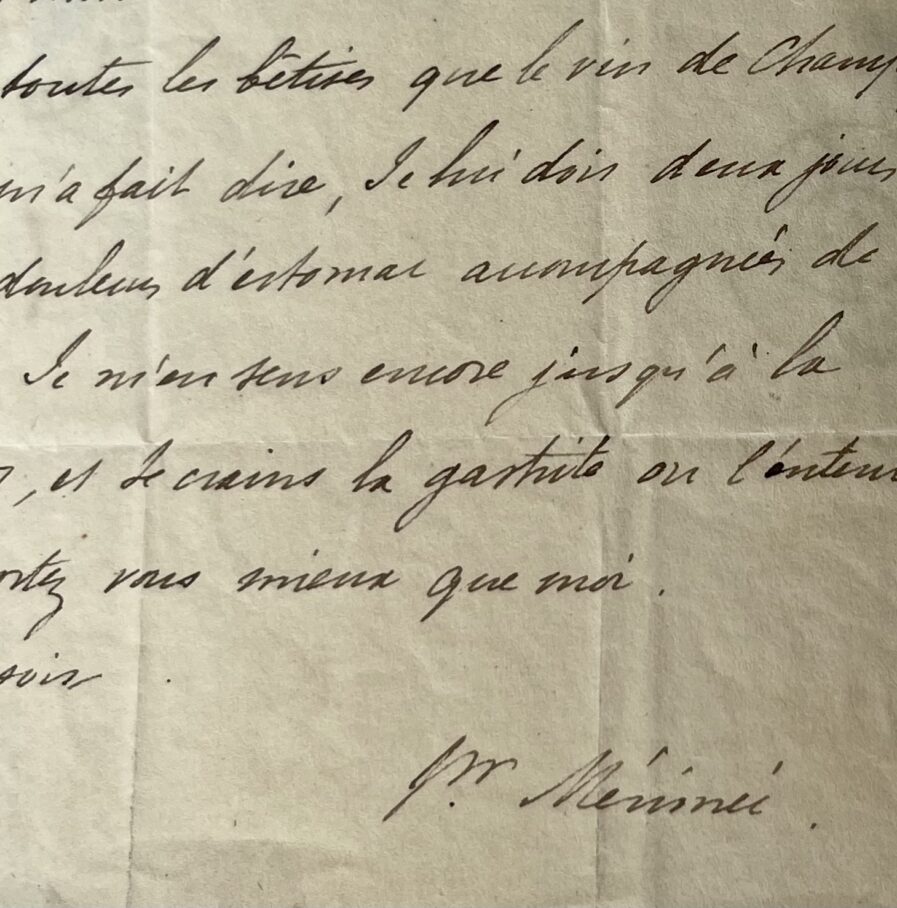 toutes les bêtises que le vin de Champ
m'a fait dire, Je lui dois deux jours
douleurs d'estomac accompagnées de
Je m'en sens encore jusqu'à la
, et Je crains la gastrite ou l'enter
ortez vous mieux que moi.
soir
Pr. Mérimée.